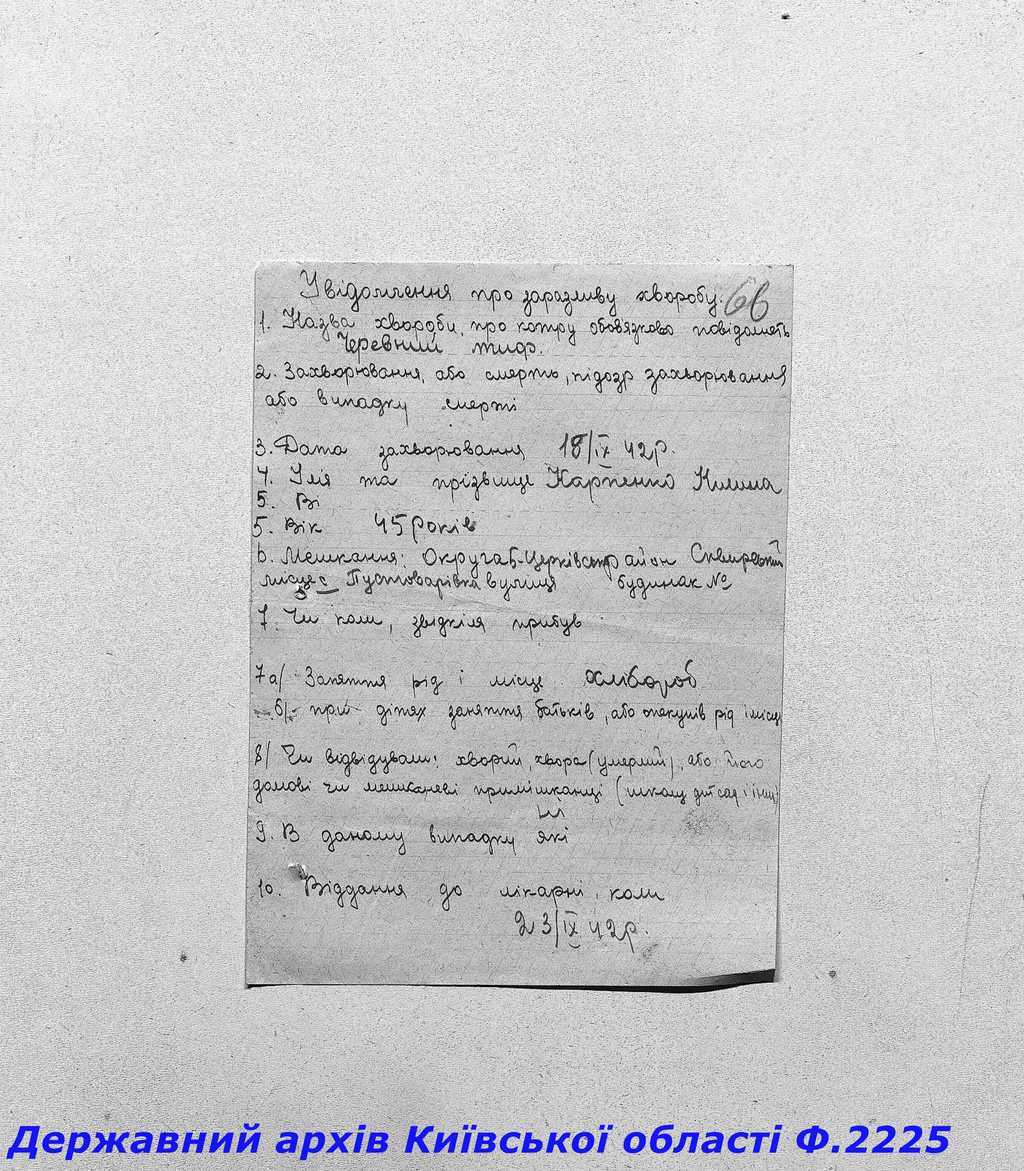 Увідомлення про заразливу хворобу. 66
1. Назва хвороби, про котру обовязково повідомлять
Черевний тиф.
2. Захворювання, або смерть, підозр захворювання
або випадку смерті
3. Дата захворювання 18/IX 42р.
4. Імя та прізвище Карпенко Килина
5. Ві
5. Вік 45 років
6. Мешкання: Округа Б-Церківськ район Сквирський
місце с Пустоварівка вулиця будинак №
7. Чи коли, звідкіля прибув
7а/ Заняття рід і місце хлібороб
б/ при дітях заняття батьків, або опекунів рід і місце
8/ Чи відвідували: хворий, хвора (умерший), або його
домові чи мешканеві примішканці (школу дит сад і інш)
9. В даному випадку які
10. Віддання до лікарні, коли
23/IX 42р.
Державний архів Київської області Ф.2225